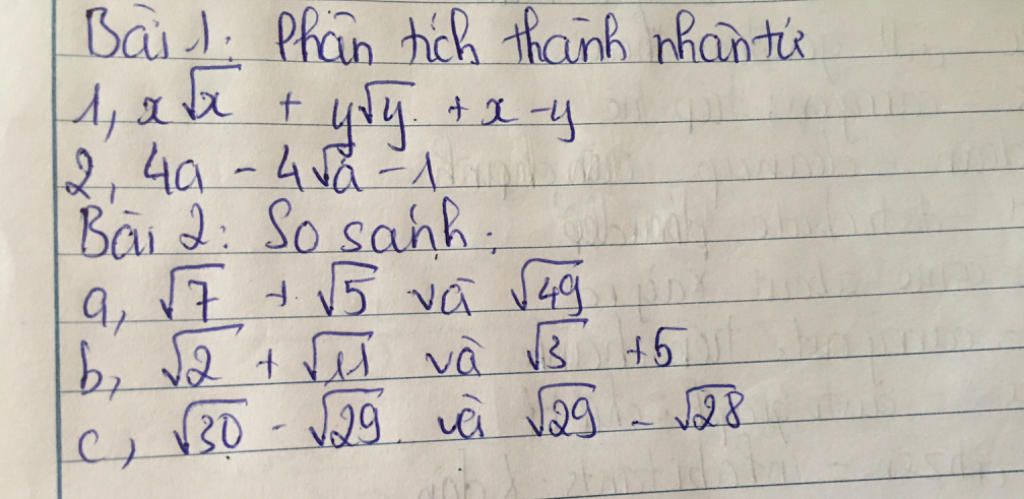 Bài 1: Phân tích thành nhân tử
1, x√x + y√y + x - y
2, 4a - 4√a - 1
Bài 2: So sánh:
a, √7 + √5 và √49
b, √2 + √11 và √3 + 5
c, √30 - √29 và √29 - √28